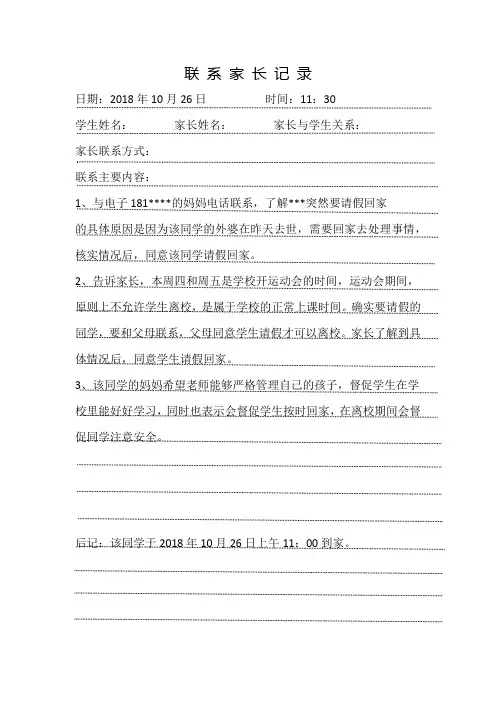 联系家长记录
日期：2018年10月26日 时间：11：30
学生姓名： 家长姓名： 家长与学生关系：
家长联系方式：
联系主要内容：
1、与电子181****的妈妈电话联系，了解***突然要请假回家
的具体原因是因为该同学的外婆在昨天去世，需要回家去处理事情，
核实情况后，同意该同学请假回家。
2、告诉家长，本周四和周五是学校开运动会的时间，运动会期间，
原则上不允许学生离校，是属于学校的正常上课时间。确实要请假的
同学，要和父母联系，父母同意学生请假才可以离校。家长了解到具
体情况后，同意学生请假回家。
3、该同学的妈妈希望老师能够严格管理自己的孩子，督促学生在学
校里能好好学习，同时也表示会督促学生按时回家，在离校期间会督
促同学注意安全。
后记：该同学于2018年10月26日上午11：00到家。